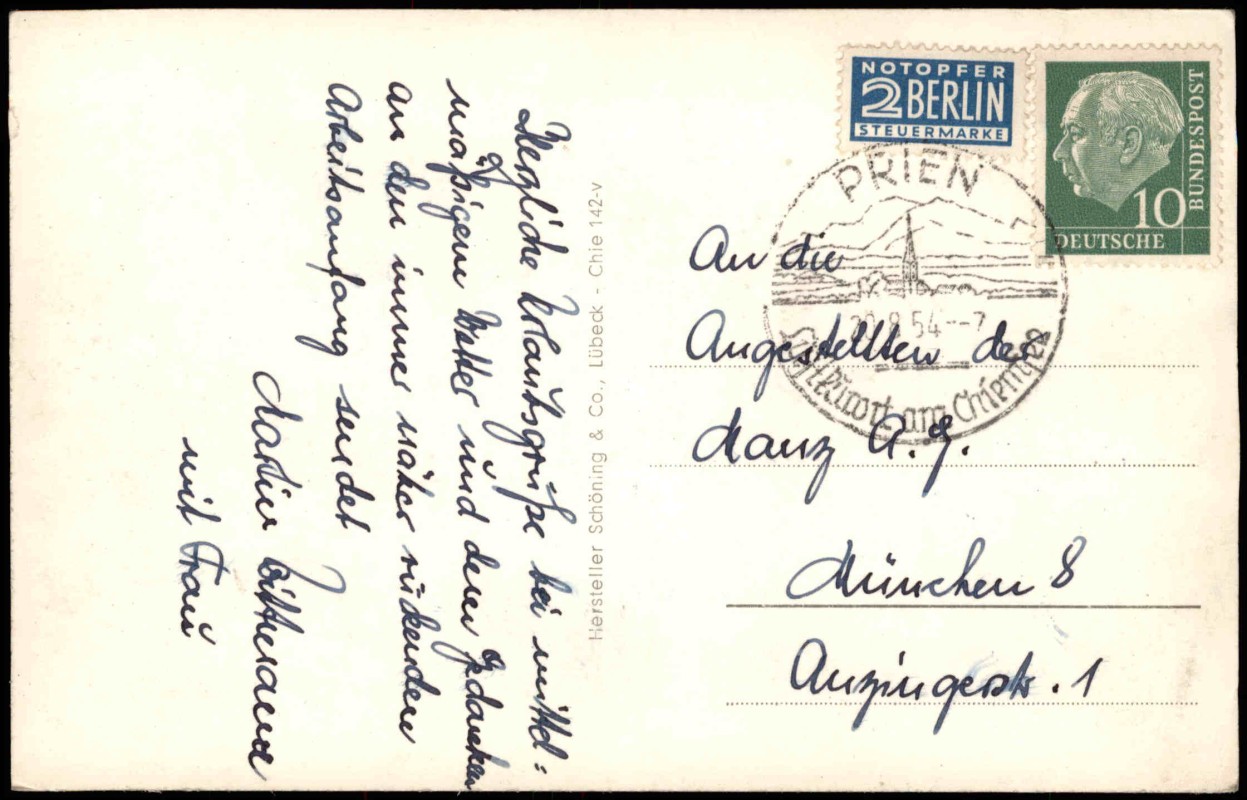 Herzliche Urlaubsgrüße bei mittel=
mäßigem Wetter und dem Gedanken
an den immer näher rückenden
Arbeitsanfang sendet
Martin
mit Frau
Hersteller Schöning & Co., Lübeck - Chie 142-v
NOTOPFER
2 BERLIN
STEUERMARKE
DEUTSCHE
BUNDESPOST
10
PRIEN
8.54--7
Luftkurort am Chiemsee
An die
Angestellten der
Manz A.G.
München 8
Anzingerstr. 1